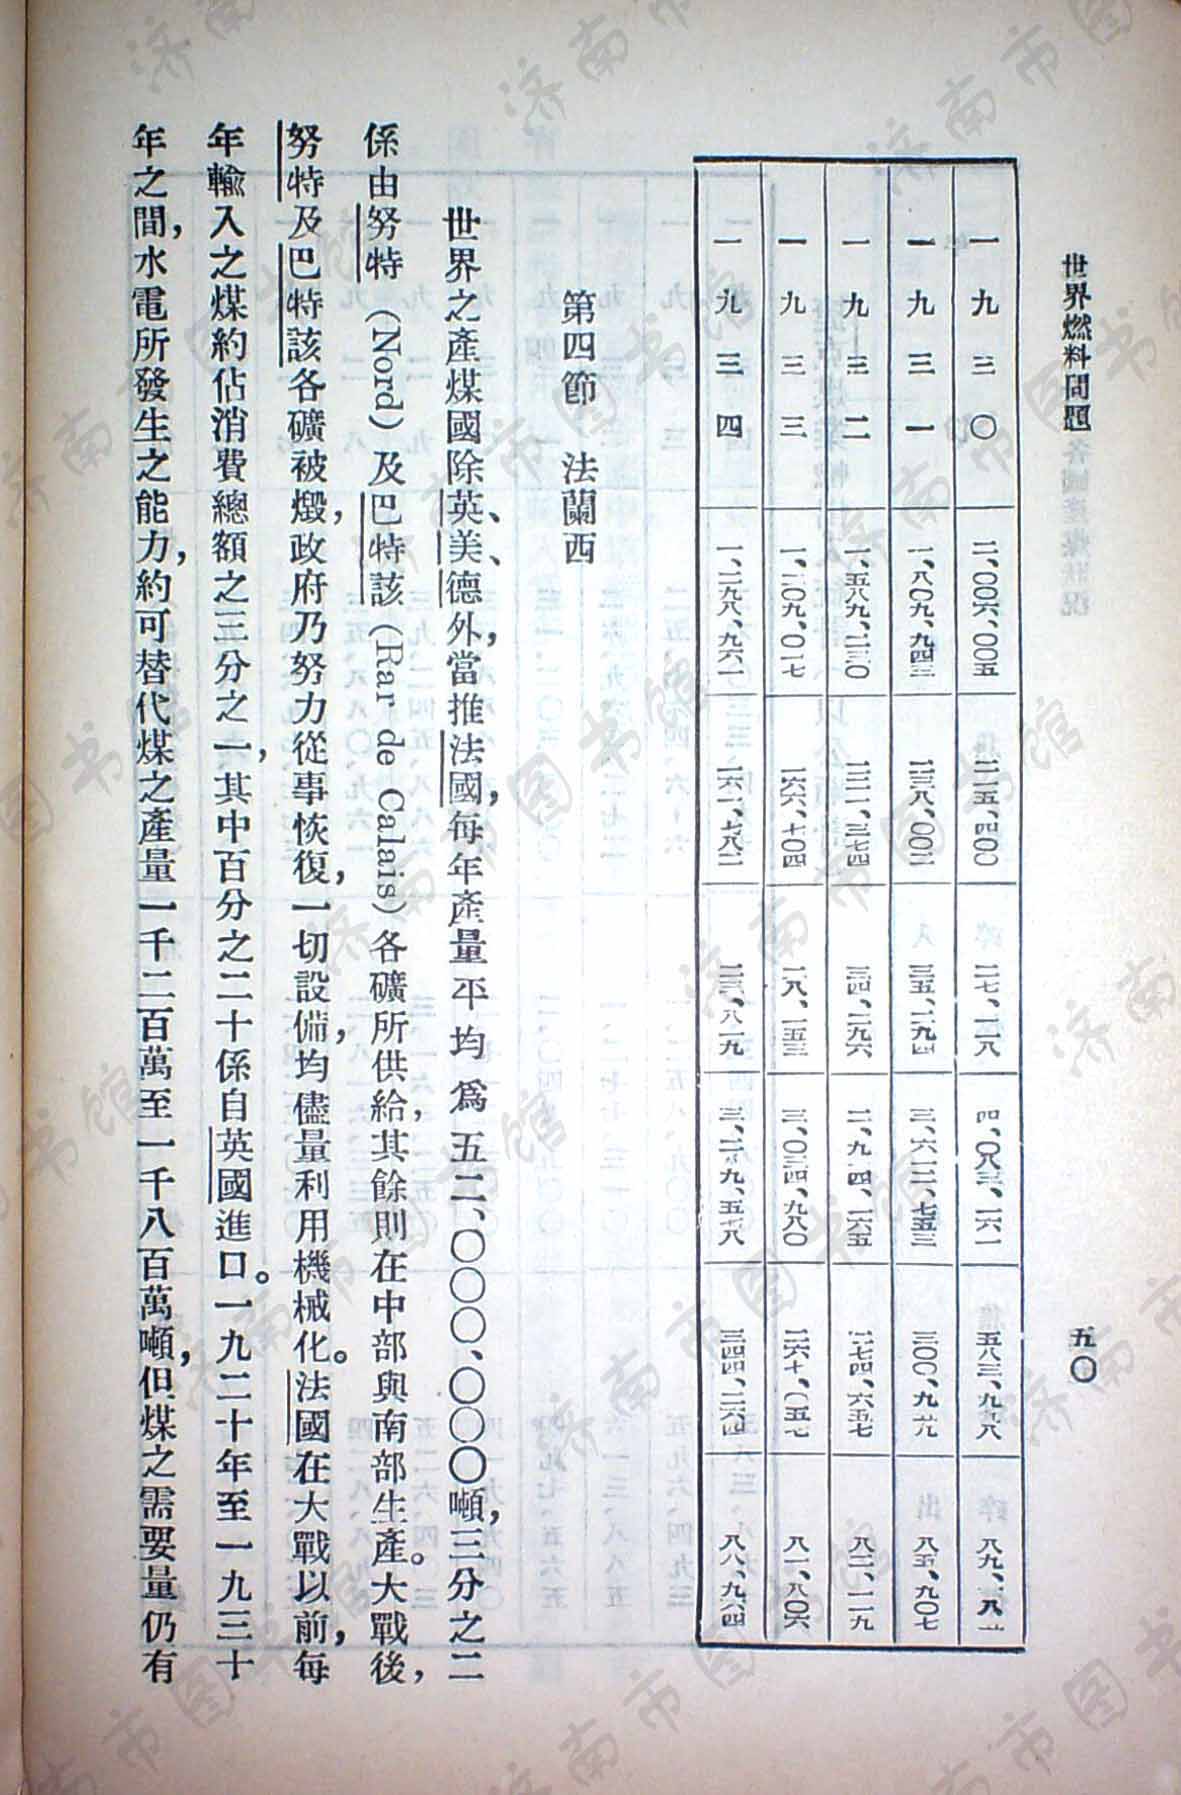 世界燃料問題
五〇
一九三〇 二、〇〇六、〇〇五 四、〇八三、一六一
一九三一 一、八〇九、九四三 二三八、〇〇二 三五、二九四 三、六一二、七五三 八五、九〇七
一九三二 一、五八九、二三〇 三四、二九六 二、九一四、一六五 二七四、六五七 八二、一一九
一九三三 一六六、七〇四 一八、一五三 三、〇三四、九八〇 八一、八〇六
一九三四 一、二九八、九六一 一六一、七八二 二三、八一九 三、二一九、五七八 三四四、二六四 八八、九六四
第四節　法蘭西
世界之產煤國除英、美、德外，當推法國，每年產量平均爲五二、〇〇〇、〇〇〇噸，三分之二
係由努特（Nord）及巴特該（Rar de Calais）各礦所供給，其餘則在中部與南部生產。大戰後，
努特及巴特該各礦被燬，政府乃努力從事恢復，一切設備，均儘量利用機械化。法國在大戰以前，每
年輸入之煤約佔消費總額之三分之一，其中百分之二十係自英國進口。一九二十年至一九三十
年之間，水電所發生之能力，約可替代煤之產量一千二百萬至一千八百萬噸，但煤之需要量仍有